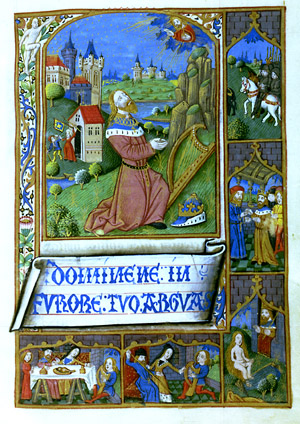 DOMINE NE IN
FURORE TUO ARGUA